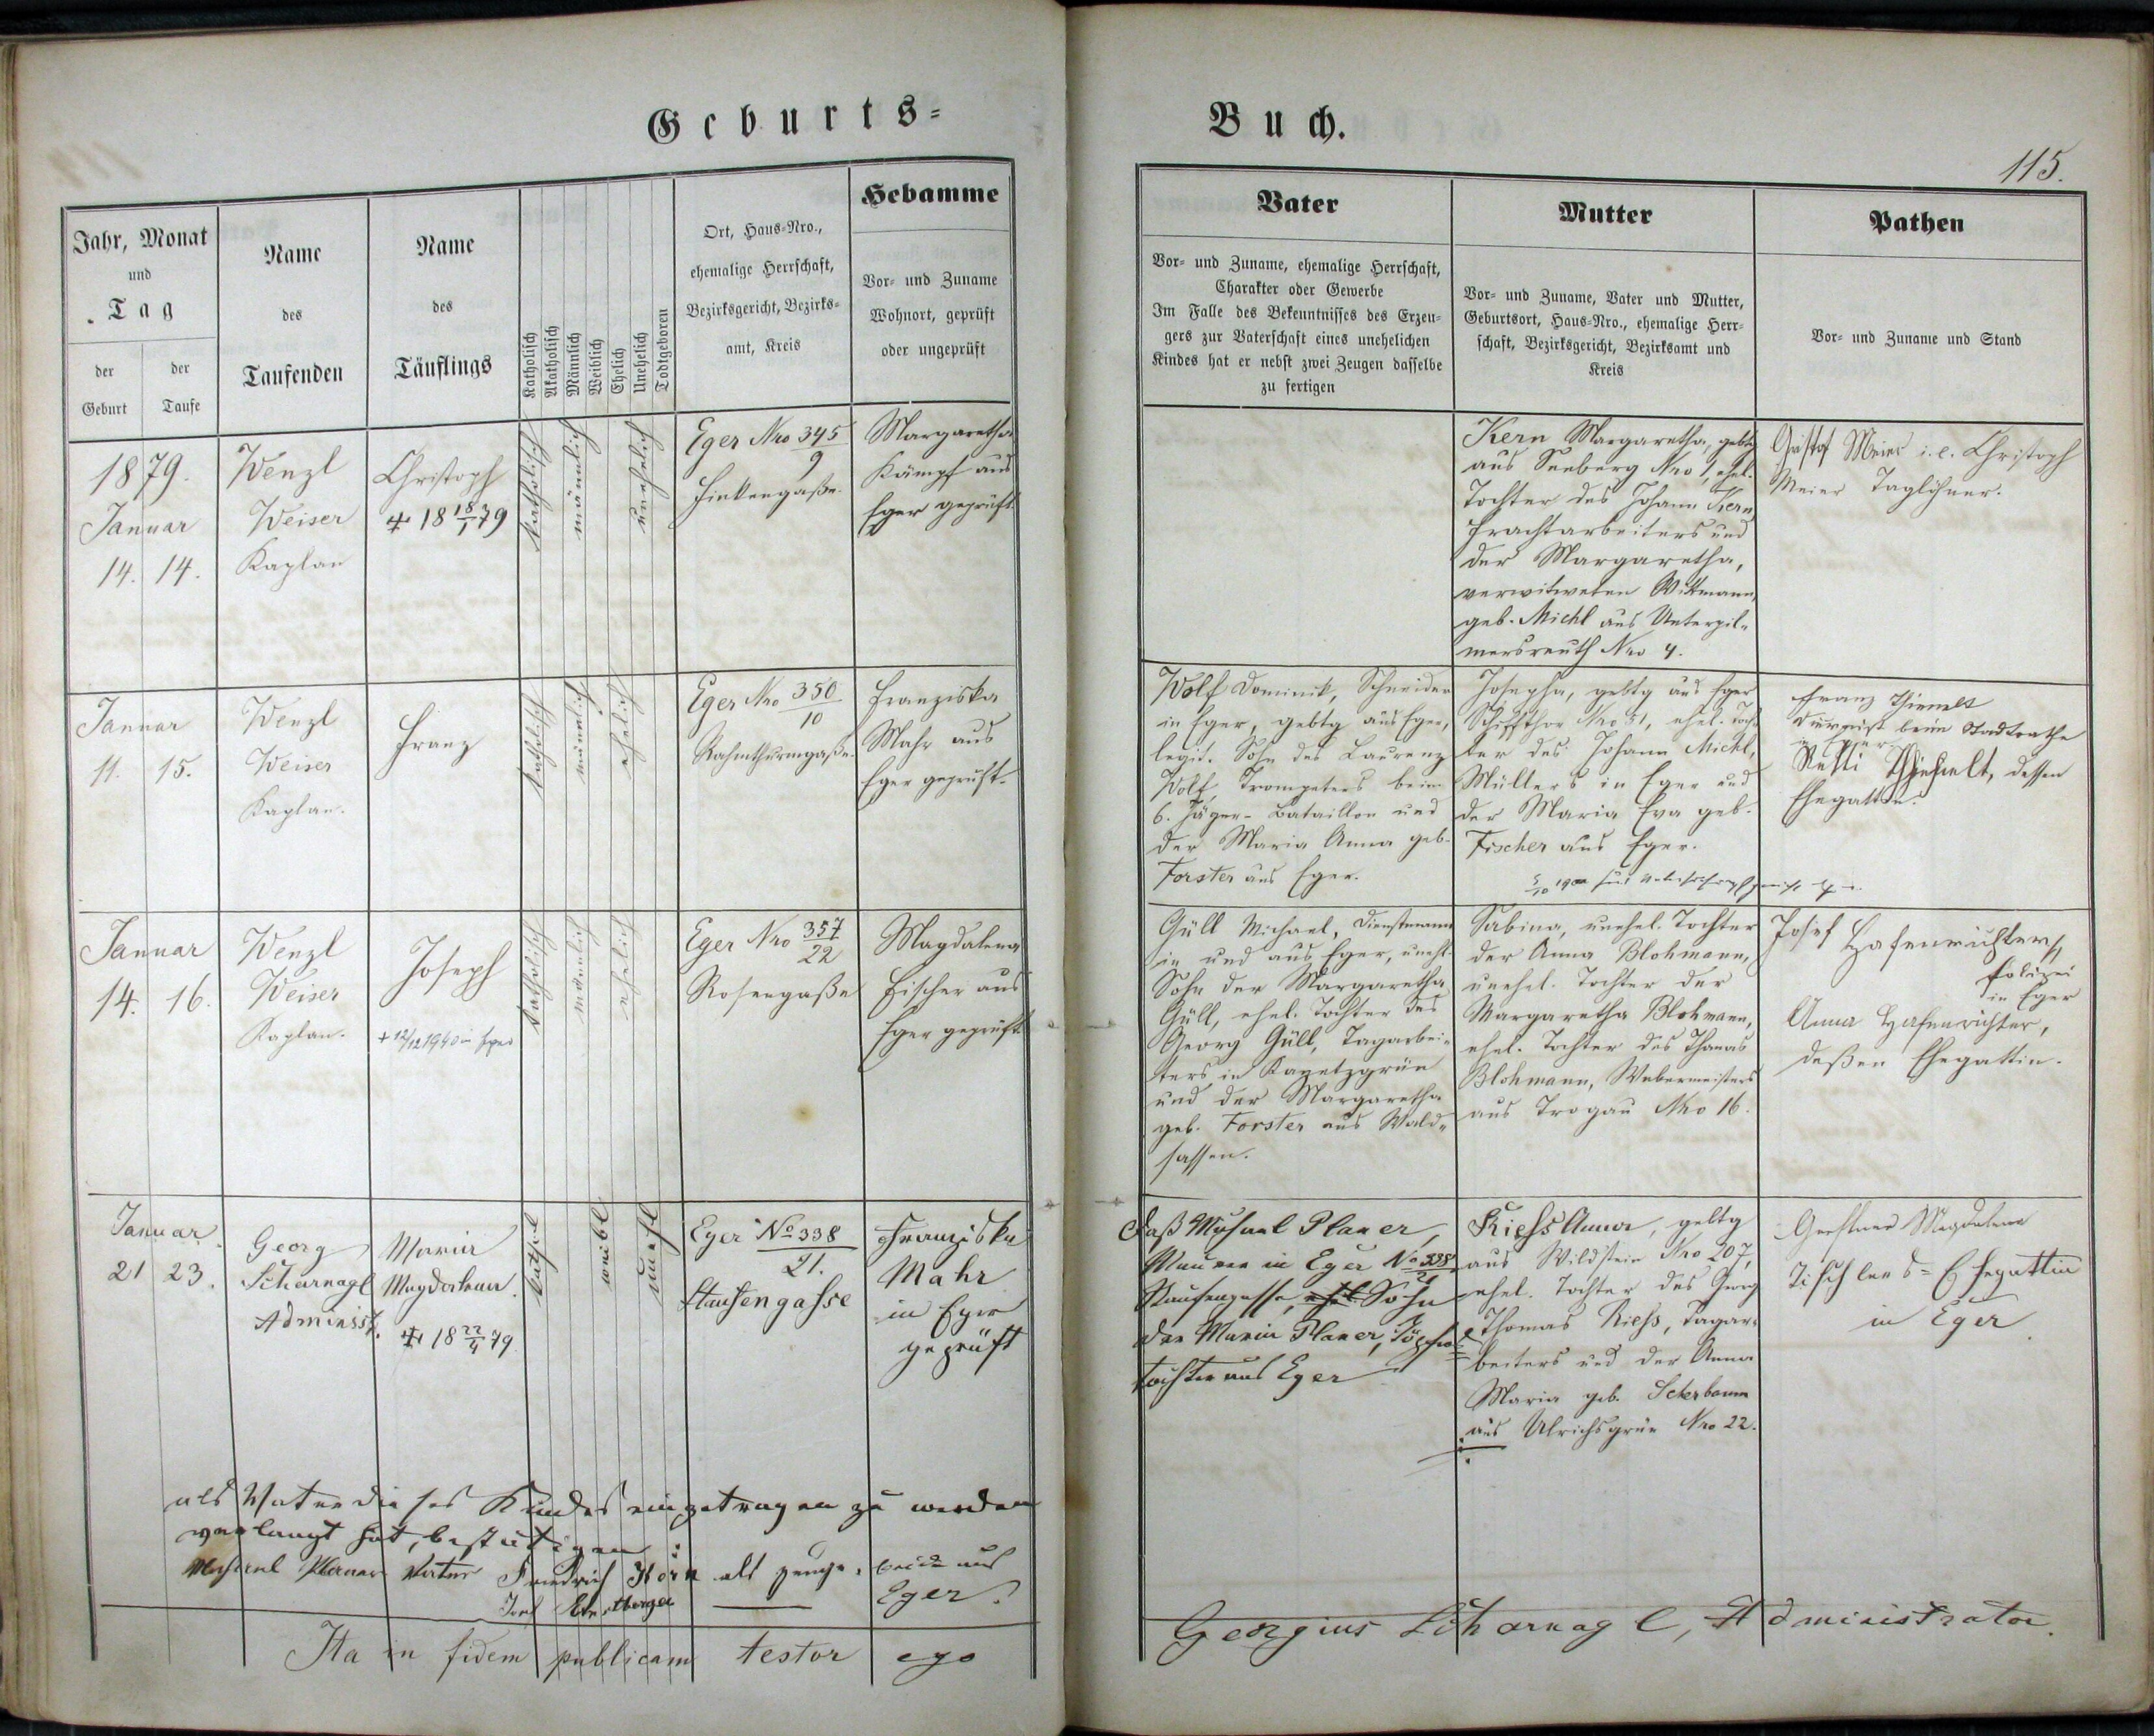 Geburts=
Buch.
115.
Jahr, Monat
und
Tag
der
Geburt
der
Taufe
Name
des
Taufenden
Name
des
Täuflings
Katholisch
Akatholisch
Männlich
Weiblich
Ehelich
Unehelich
Todtgeboren
Ort, Haus-Nro.,
ehemalige Herrschaft,
Bezirksgericht, Bezirks-
amt, Kreis
Hebamme
Vor- und Zuname
Wohnort, geprüft
oder ungeprüft
Vater
Vor- und Zuname, ehemalige Herrschaft,
Charakter oder Gewerbe
Im Falle des Bekenntnisses des Erzeu-
gers zur Vaterschaft eines unehelichen
Kindes hat er nebst zwei Zeugen dasselbe
zu fertigen
Mutter
Vor- und Zuname, Vater und Mutter,
Geburtsort, Haus-Nro., ehemalige Herr-
schaft, Bezirksgericht, Bezirksamt und
Kreis
Pathen
Vor- und Zuname und Stand
1879.
Januar
14. 14.
Wenzl
Weiser
Kaplan
Christoph
+ 18 18/1 79
katholisch
männlich
unehelich
Eger Nro 345/9
Finkengaße.
Margaretha
Kämpf aus
Eger geprüft
Kern Margaretha, gebtg
aus Seeberg Nro 1, ehel.
Tochter des Johann Kern
Frachtarbeiters und
der Margaretha,
verwitweten Wittmann,
geb. Michl aus Unterpil-
mersreuth Nro 4.
Meier i. e. Christoph
Meier Taglöhner.
Januar
11. 15.
Wenzl
Weiser
Kaplan.
Franz
katholisch
männlich
ehelich
Eger Nro 350/10
Rahmthurmgaße.
Franziska
Mahr aus
Eger geprüft.
Wolf Dominik, Schneider
in Eger, gebtg aus Eger,
legit. Sohn des Laurenz
Wolf, Trompeters beim
6. Jäger-Bataillon und
der Maria Anna geb.
Forster aus Eger.
Josepha, gebtg aus Eger
Schiffthor Nro 31, ehel. Toch-
ter des Johann Michl,
Müllers in Eger und
der Maria Eva geb.
Fischer aus Eger.
Franz Thienelt
Diurnist beim Stadtrathe
in Eger
Thienelt, dessen
Ehegattin.
Januar
14. 16.
Wenzl
Weiser
Kaplan.
Joseph
+ 12/12 1940 in Eger
katholisch
männlich
ehelich
Eger Nro 357/22
Rosengaße
Magdalena
Fischer aus
Eger geprüft
Güll Michael, Dienstmann
in und aus Eger, unehl.
Sohn der Margaretha
Güll, ehel. Tochter des
Georg Güll, Tagarbei-
ters in Kagetzgrün
und der Margaretha
geb. Forster aus Wald-
sassen.
Sabina, unehel. Tochter
der Anna Blohmann,
unehel. Tochter der
Margaretha Blohmann,
ehel. Tochter des Thomas
Blohmann, Webermeisters
aus Trogau Nro 16.
Josef Hafenrichter,
Polizei
in Eger
Anna Hafenrichter,
deßen Ehegattin.
Januar
21 23.
Georg
Scharnagl
Administ.
Maria
Magdalena.
+ 18 22/4 79
kathol
weibl
unehl
Eger No 338/21.
Stausengasse
Franziska
Mahr
in Eger
geprüft
Daß Michael Planer,
Maurer in Eger No 338/21
Stausengasse, ehel Sohn
der Maria Planer,
tochter aus Eger
Riehs Anna, gebtg
aus Wildstein Nro 207,
ehel. Tochter des Georg
Thomas Riehs, Tagar-
beiters und der Anna
Maria geb. Scherbaum
aus Ulrichsgrün Nro 22.
Magdalena
Tischlers=Ehegattin
in Eger
als Vater dieses Kindes eingetragen zu werden
verlangt hat, bestätigen:
Michael Planer Vater Friedrich Korn als Zeuge, beide aus
Eger.
Ita in fidem publicam testor ego
Georgius Scharnagl, Administrator.